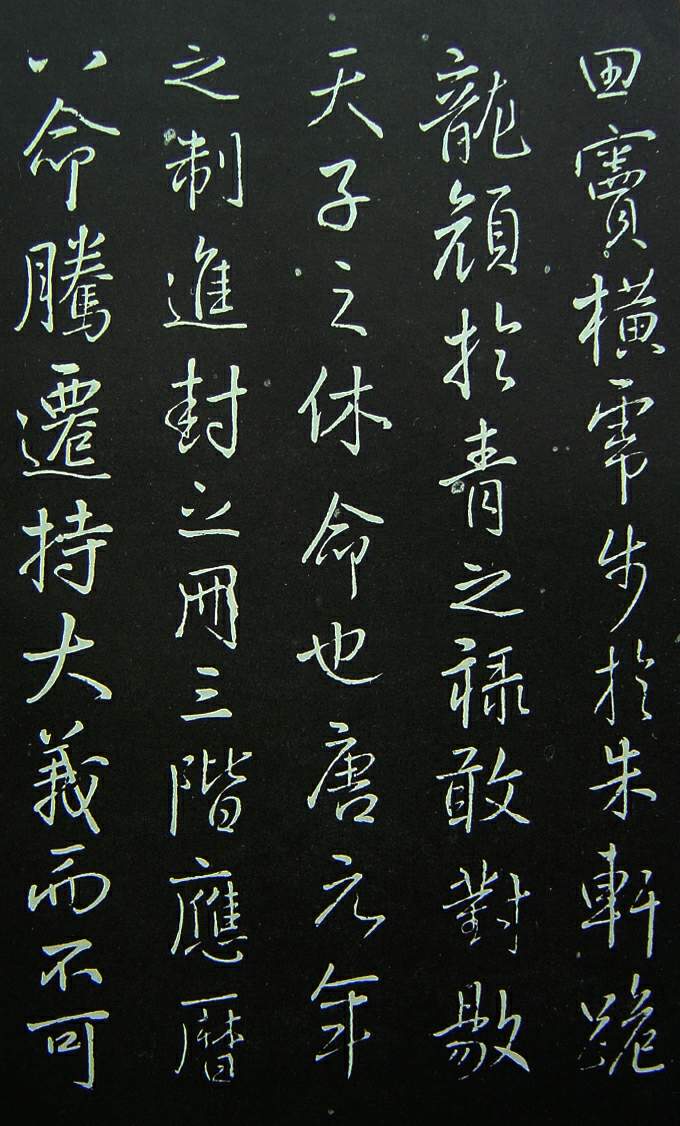 田竇橫虎步於朱軒跪
龍顏於青之祿敢對敭
天子之休命也唐元年
之制進封之冊三階應曆
以命騰遷持大義而不可